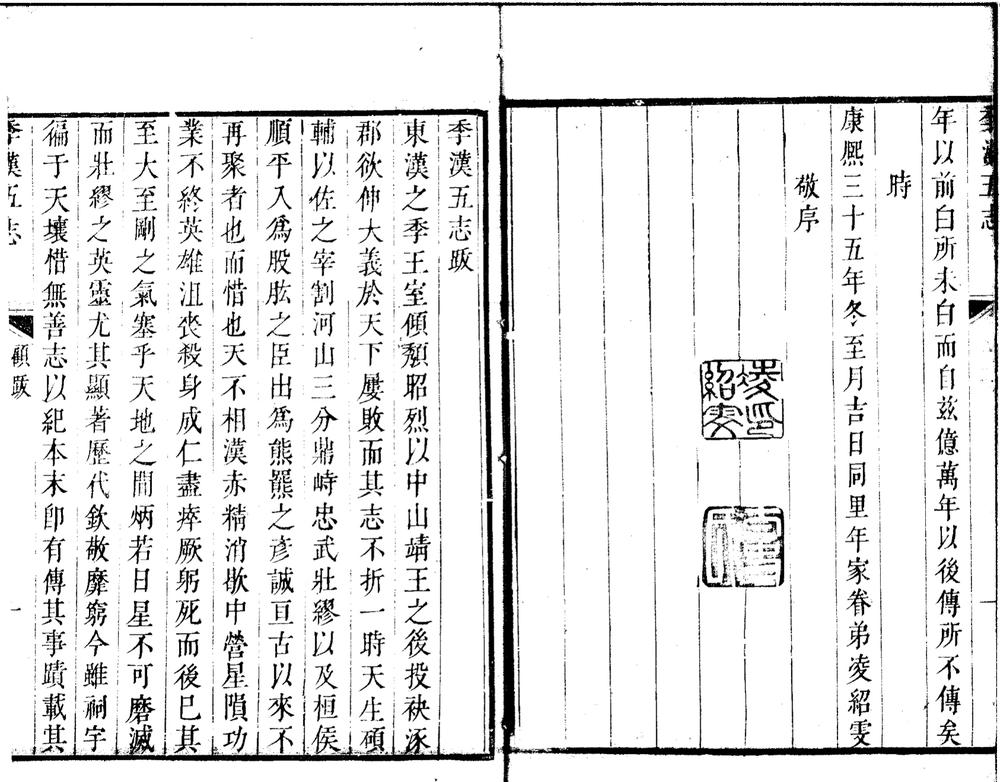 季漢五志
年以前白所未白而自茲億萬年以後傳所不傳矣
時
康熙三十五年冬至月吉日同里年家眷弟凌紹雯
敬序
凌印紹雯
季漢五志跋
東漢之季王室傾頽昭烈以中山靖王之後投袂涿
郡欲伸大義於天下屢敗而其志不折一時天生碩
輔以佐之宰割河山三分鼎峙忠武壯繆以及桓侯
順平入爲股肱之臣出爲熊羆之彥誠亘古以來不
再聚者也而惜也天不相漢赤精消歇中營星隕功
業不終英雄沮喪殺身成仁盡瘁厥躬死而後已其
至大至剛之氣塞乎天地之間炳若日星不可磨滅
而壯繆之英靈尤其顯著歷代欽敬靡窮今雖祠宇
徧于天壤惜無善志以紀本末卽有傳其事蹟載其
季漢五志
顧跋
一